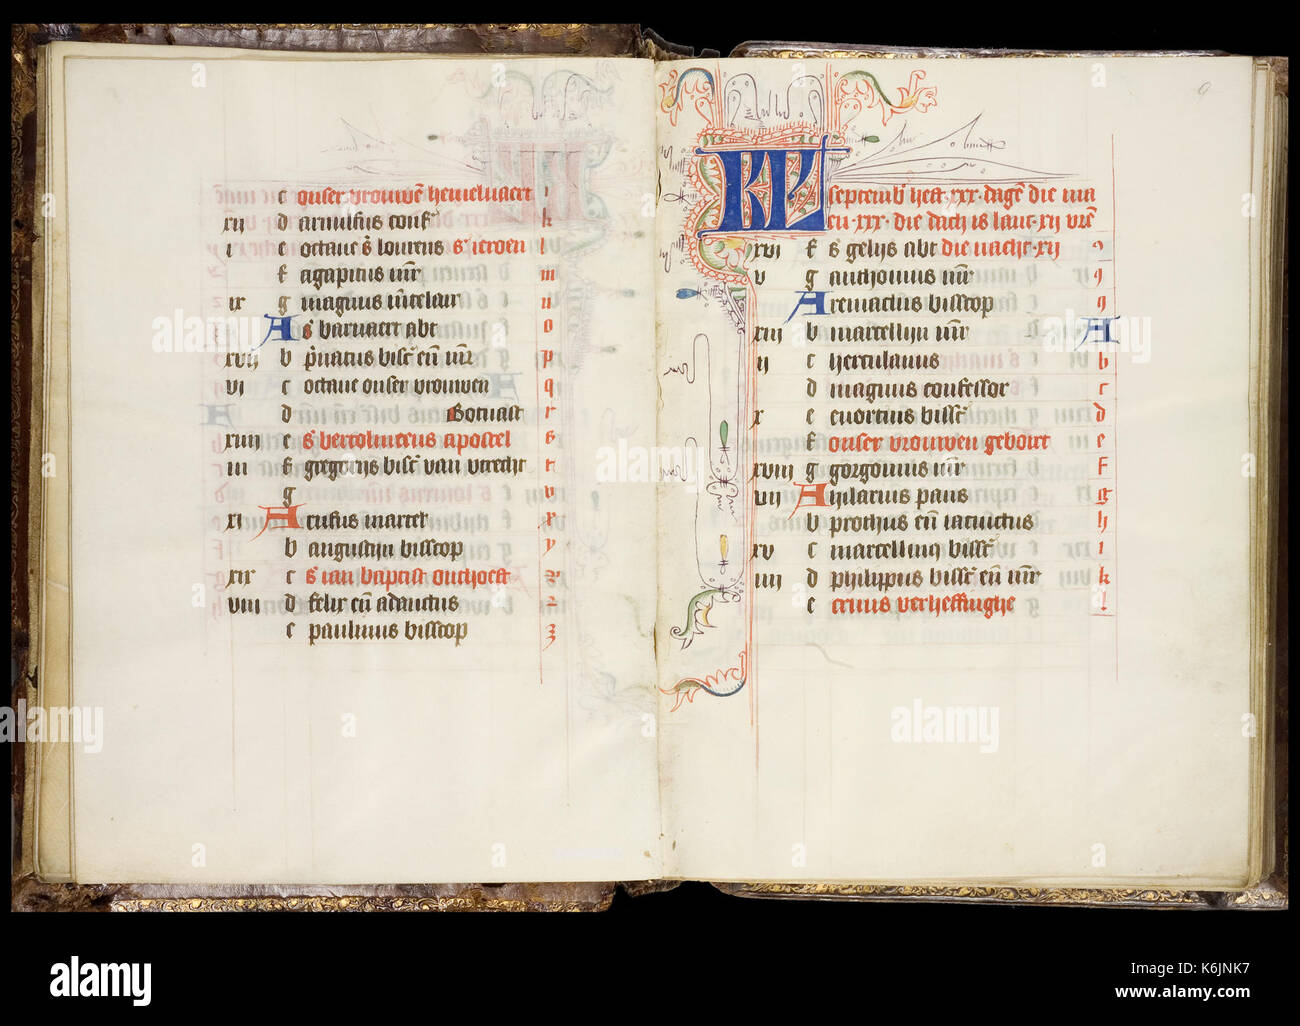 c onser vrouwē hemeluaert i
xij d arnulfus conf̄ k
i e octaue s̄ lourens s̄ ieroen l
f agapitus m̄r m
ix g magnus m̄telaar n
A s̄ barnaert abt o
xvij b p̄uatus bisc̄ en̄ m̄r p
vi c octaue onser vrouwen q
d Gotnast r
xiiij e s̄ bertolmeeus apostel s
iij f gregoriis bisc̄ van vtrecht t
g v
xi A rufus martel̄ x
b augustijn bisscop y
xix c s̄ ian baptist onthoeft
viij d felix en̄ adauctus 2
e paulinus bisscop 3
KL septemb̄ heft ·xxx· dagē die ma
en ·xxx· die dach is lanc ·xij vrē
xvi f s̄ gelijs abt die nacht ·xij
v g anthonius m̄r
A remaclus bisscop
xiij b marcellijn m̄r A
ij c herculanus b
d magnus confessor c
x e euortius bisc̄ d
f onser vrouwen gebort e
xviij g gorgonius m̄r f
vij A hilarius paus g
b prothus en̄ iacinctus h
xv c marcellinq bisc̄ i
iiij d philippus bisc̄ en̄ m̄r k
e cruus verheffinghe l
alamy
alamy
Image ID: K6JNK7
www.alamy.com